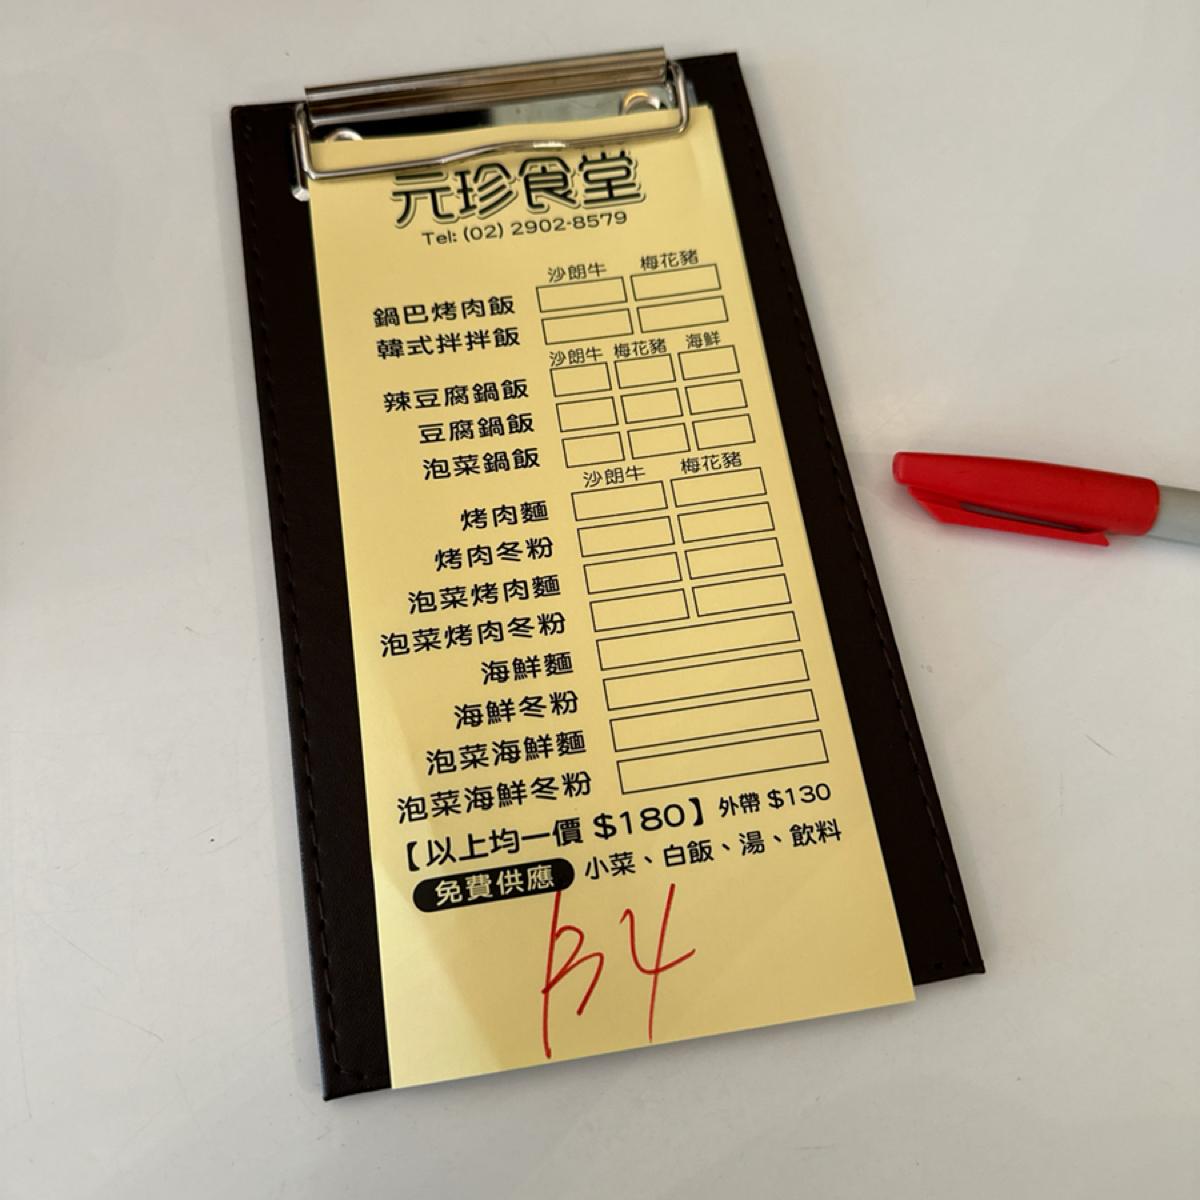 元珍食堂
Tel: (02) 2902-8579
沙朗牛 梅花豬
鍋巴烤肉飯
韓式拌拌飯
沙朗牛 梅花豬 海鮮
辣豆腐鍋飯
豆腐鍋飯
泡菜鍋飯
沙朗牛 梅花豬
烤肉麵
烤肉冬粉
泡菜烤肉麵
泡菜烤肉冬粉
海鮮麵
海鮮冬粉
泡菜海鮮麵
泡菜海鮮冬粉
【以上均一價 $180】外帶 $130
免費供應 小菜、白飯、湯、飲料
B4